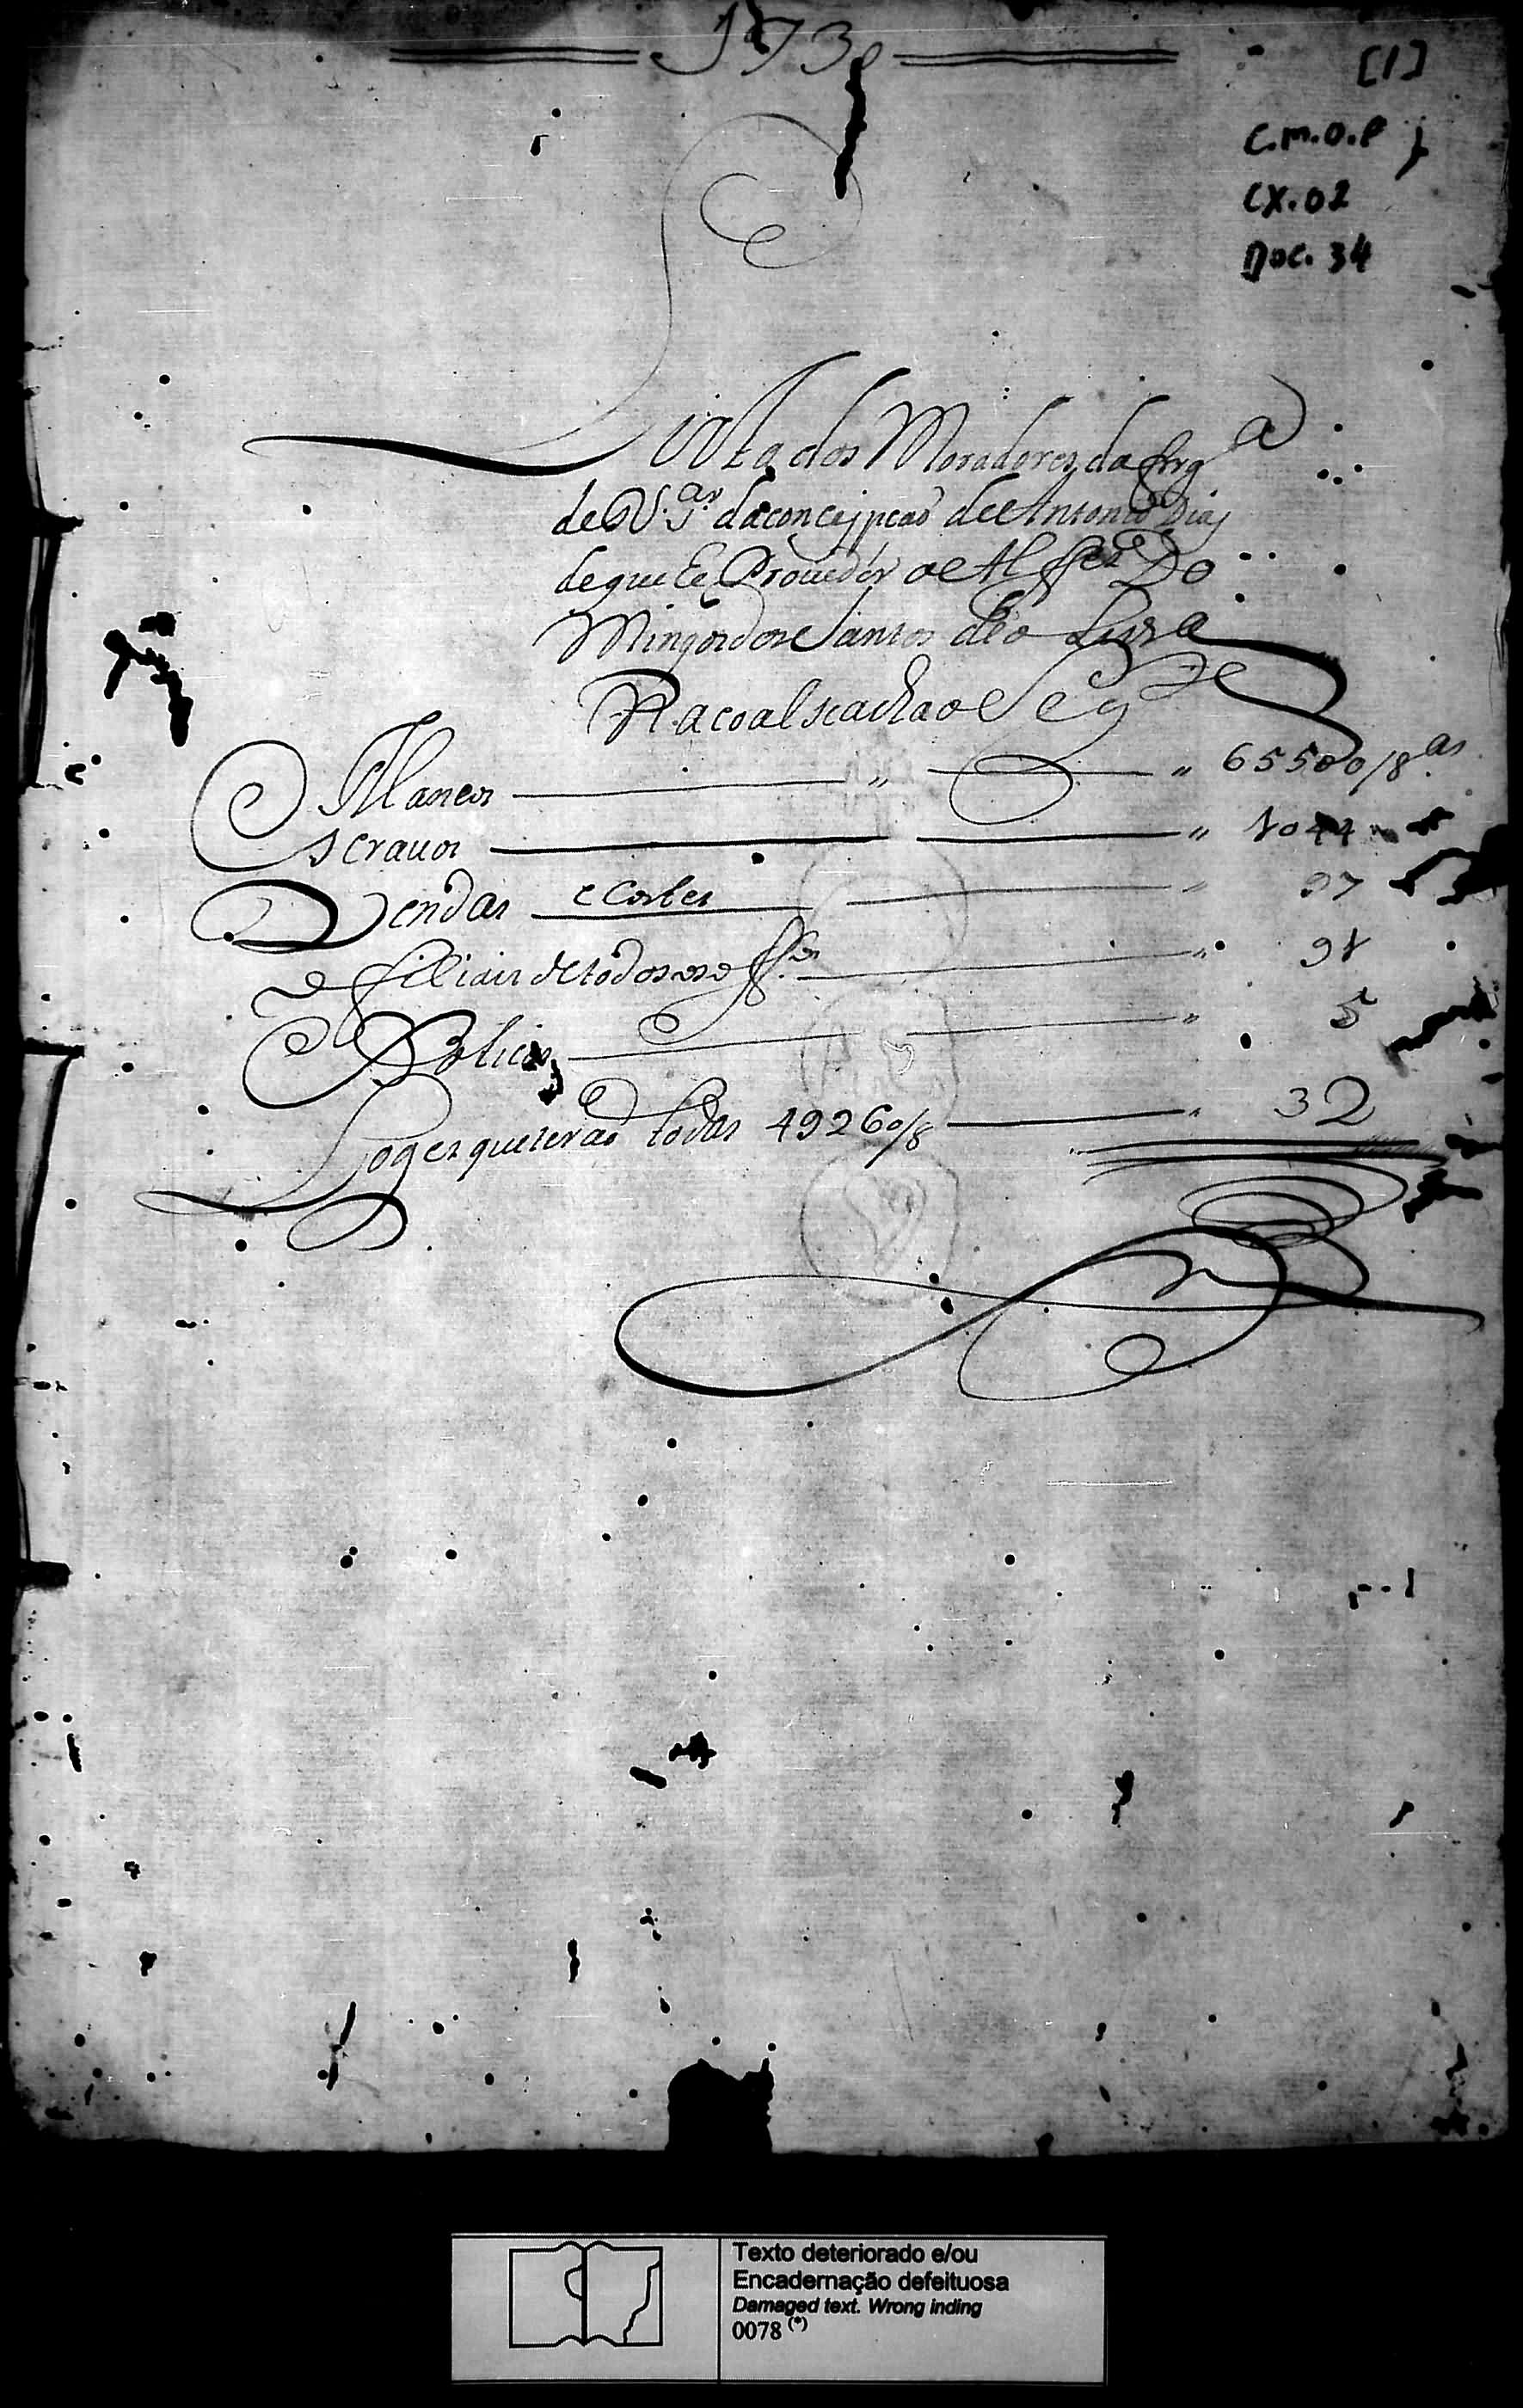 1730
[1]
C.M.O.P
CX.02
Doc. 34
Lista dos Moradores da frg.a
de N. Sr.a da conceipcaõ de Antonio Dias
de que he Provedor o Alferz Do
Mingos dos Santos
Na coal se acha o Seg.te
65500/8.as
Escravos " 1044
Vendas e Cortes " 97
Officiais de todos os off.os " 91
Boticas " 5
Loges que terão todas 49260/8 " 32
Texto deteriorado e/ou
Encadernação defeituosa
Damaged text. Wrong inding
0078 (*)